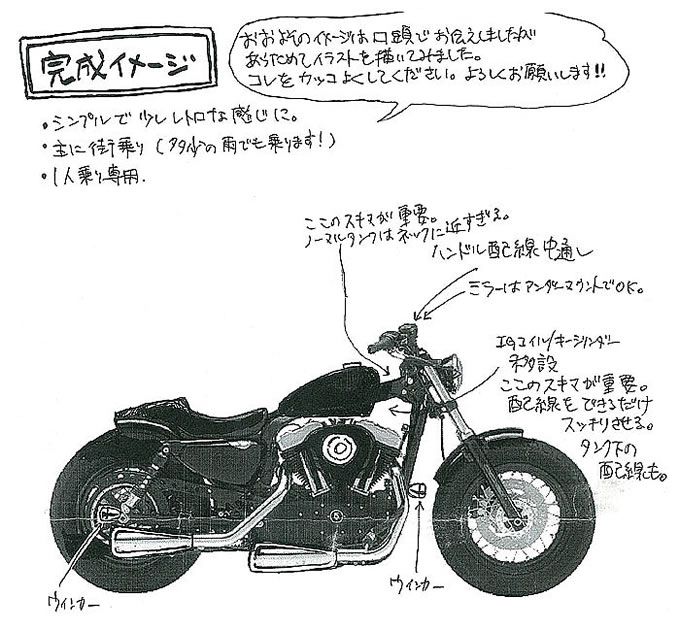 完成イメージ
おおよそのイメージは口頭でお伝えしましたが
あらためてイラストを描いてみました。
コレをカッコよくしてください。よろしくお願いします!!
・シンプルで少しレトロな感じに。
・主に街乗り(多少の雨でも乗ります!)
・1人乗り専用.
ここのスキマが重要。
ノーマルタンクはネックに近すぎる。
ハンドル配線中通し
ミラーはアンダーマウントでOK。
IGコイル/キーシリンダー
移設
ここのスキマが重要。
配線をできるだけ
スッキリさせる。
タンク下の
配線も。
ウインカー
ウインカー